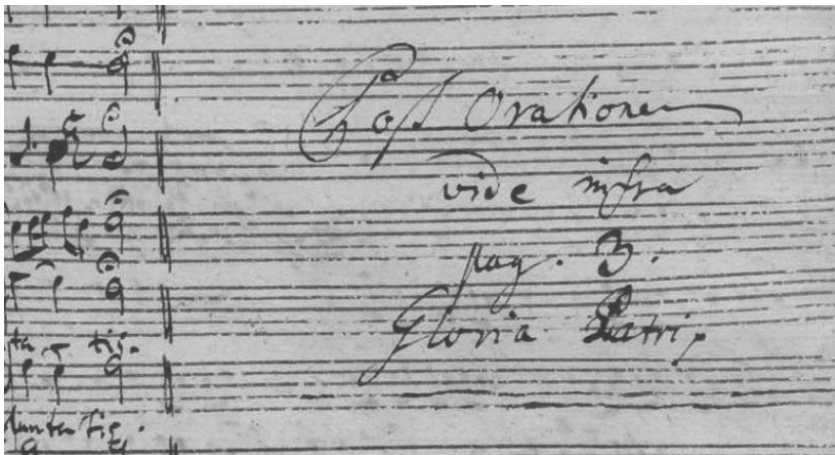 Post Orationem
vide infra
pag. 3.
Gloria Patri,
ta - tis.
luntatis.